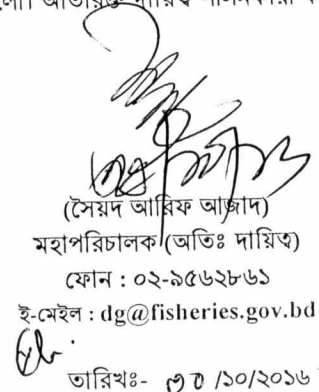 (সৈয়দ আরিফ আজাদ)
মহাপরিচালক (অতিঃ দায়িত্ব)
ফোন : ০২-৯৫৬২৮৬১
ই-মেইল : dg@fisheries.gov.bd
তারিখঃ- ৩০ /১০/২০১৬